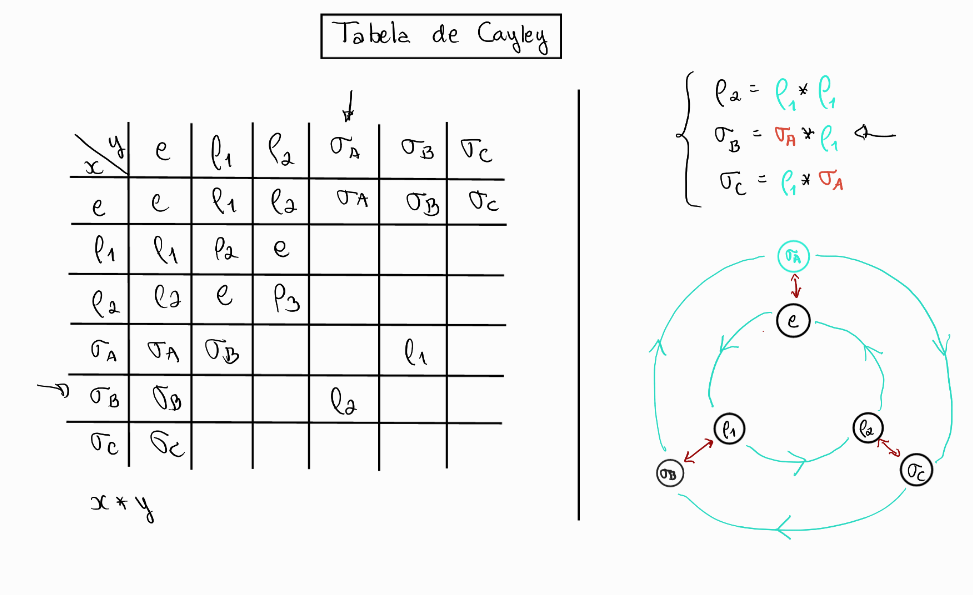 Tabela de Cayley
x y e ρ₁ ρ₂ σ_A σ_B σ_C
e e ρ₁ ρ₂ σ_A σ_B σ_C
ρ₁ ρ₁ ρ₂ e
ρ₂ ρ₂ e ρ₃
σ_A σ_A σ_B ρ₁
σ_B σ_B ρ₂
σ_C σ_C
x * y
ρ₂ = ρ₁ * ρ₁
σ_B = σ_A * ρ₁
σ_C = ρ₁ * σ_A
σ_A
e
ρ₁ ρ₂
σ_B σ_C